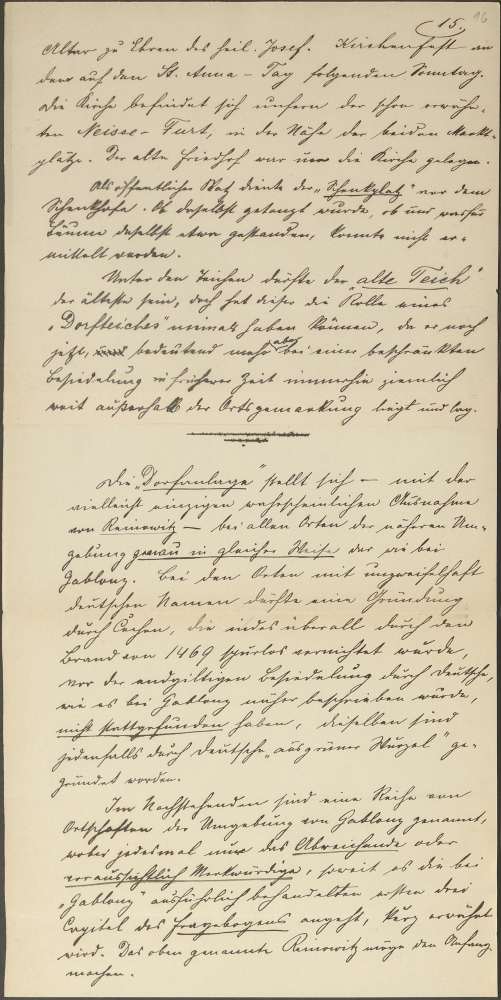 15.
96
Altar zu Ehren des heil. Josef. Kirchenfest an
dem auf den St. Anna-Tag folgenden Sonntag.
Die Kirche befindet sich unfern der schon erwähn-
ten Neisse-Furt, in der Nähe der beiden Markt-
plätze. Der alte Friedhof war um die Kirche gelegen.
Als öffentlicher Platz diente der „Schenkplatz" vor dem
Schenkhofe. Ob daselbst getanzt wurde, ob und welche
Bäume daselbst etwa gestanden, konnte nicht er-
mittelt werden.
Unter den Teichen dürfte der „alte Teich"
der älteste sein, doch hat dieser die Rolle eines
„Dorfteiches" niemals haben können, da er noch
jetzt, bedeutend mehr aber bei einer beschränkten
Besiedelung in früherer Zeit immerhin ziemlich
weit außerhalb der Ortsgemarkung liegt und lag.
Die „Dorfanlage" stellt sich — mit der
vielleicht einzigen wahrscheinlichen Ausnahme
von Reinowitz — bei allen Orten der näheren Um-
gebung genau in gleicher Weise dar wie bei
Gablonz. Bei den Orten mit unzweifelhaft
deutschen Namen dürfte eine Gründung
durch Čechen, die indes überall durch den
Brand von 1469 spurlos vernichtet wurde,
vor der endgiltigen Besiedelung durch Deutsche,
wie es bei Gablonz näher beschrieben wurde,
nicht stattgefunden haben, dieselben sind
jedenfalls durch Deutsche „aus grüner Wurzel" ge-
gründet worden.
Im Nachstehenden sind eine Reihe von
Ortschaften der Umgebung von Gablonz genannt,
wobei jedesmal nur das Abweichende oder
voraussichtlich Merkwürdige, soweit es die bei
„Gablonz" ausführlich behandelten ersten drei
Capitel des Fragebogens angeht, kurz erwähnt
wird. Das oben genannte Reinowitz möge den Anfang
machen.